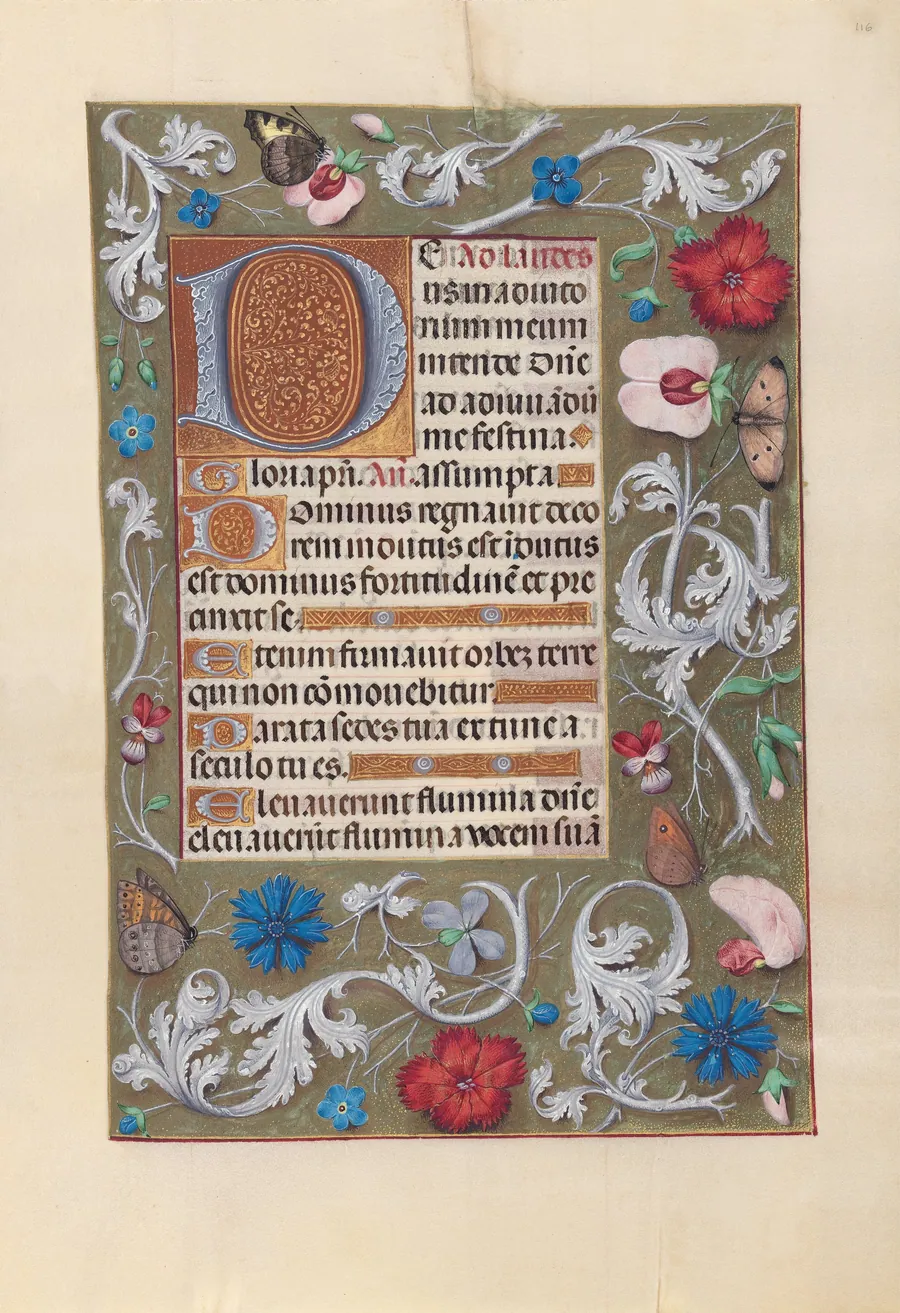 116
DE Ad laudes
us in adiuto
rium meum
intende Dñe
ad adiuuādū
me festina.
Gloria pr̃i. Añ. assumpta
Dominus regnauit deco
rem indutus est īdutus
est dominus fortitudinē et pre
cinxit se.
Etenim firmauit orbeꝫ terre
qui non cōmouebitur.
Parata sedes tua ex tunc a
seculo tu es.
Eleuauerunt flumina dñe
eleuauerūt flumina vocem suā